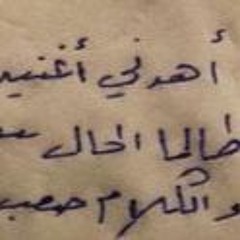 أهدني أغنيه
طالما الحال
والكلام صعب